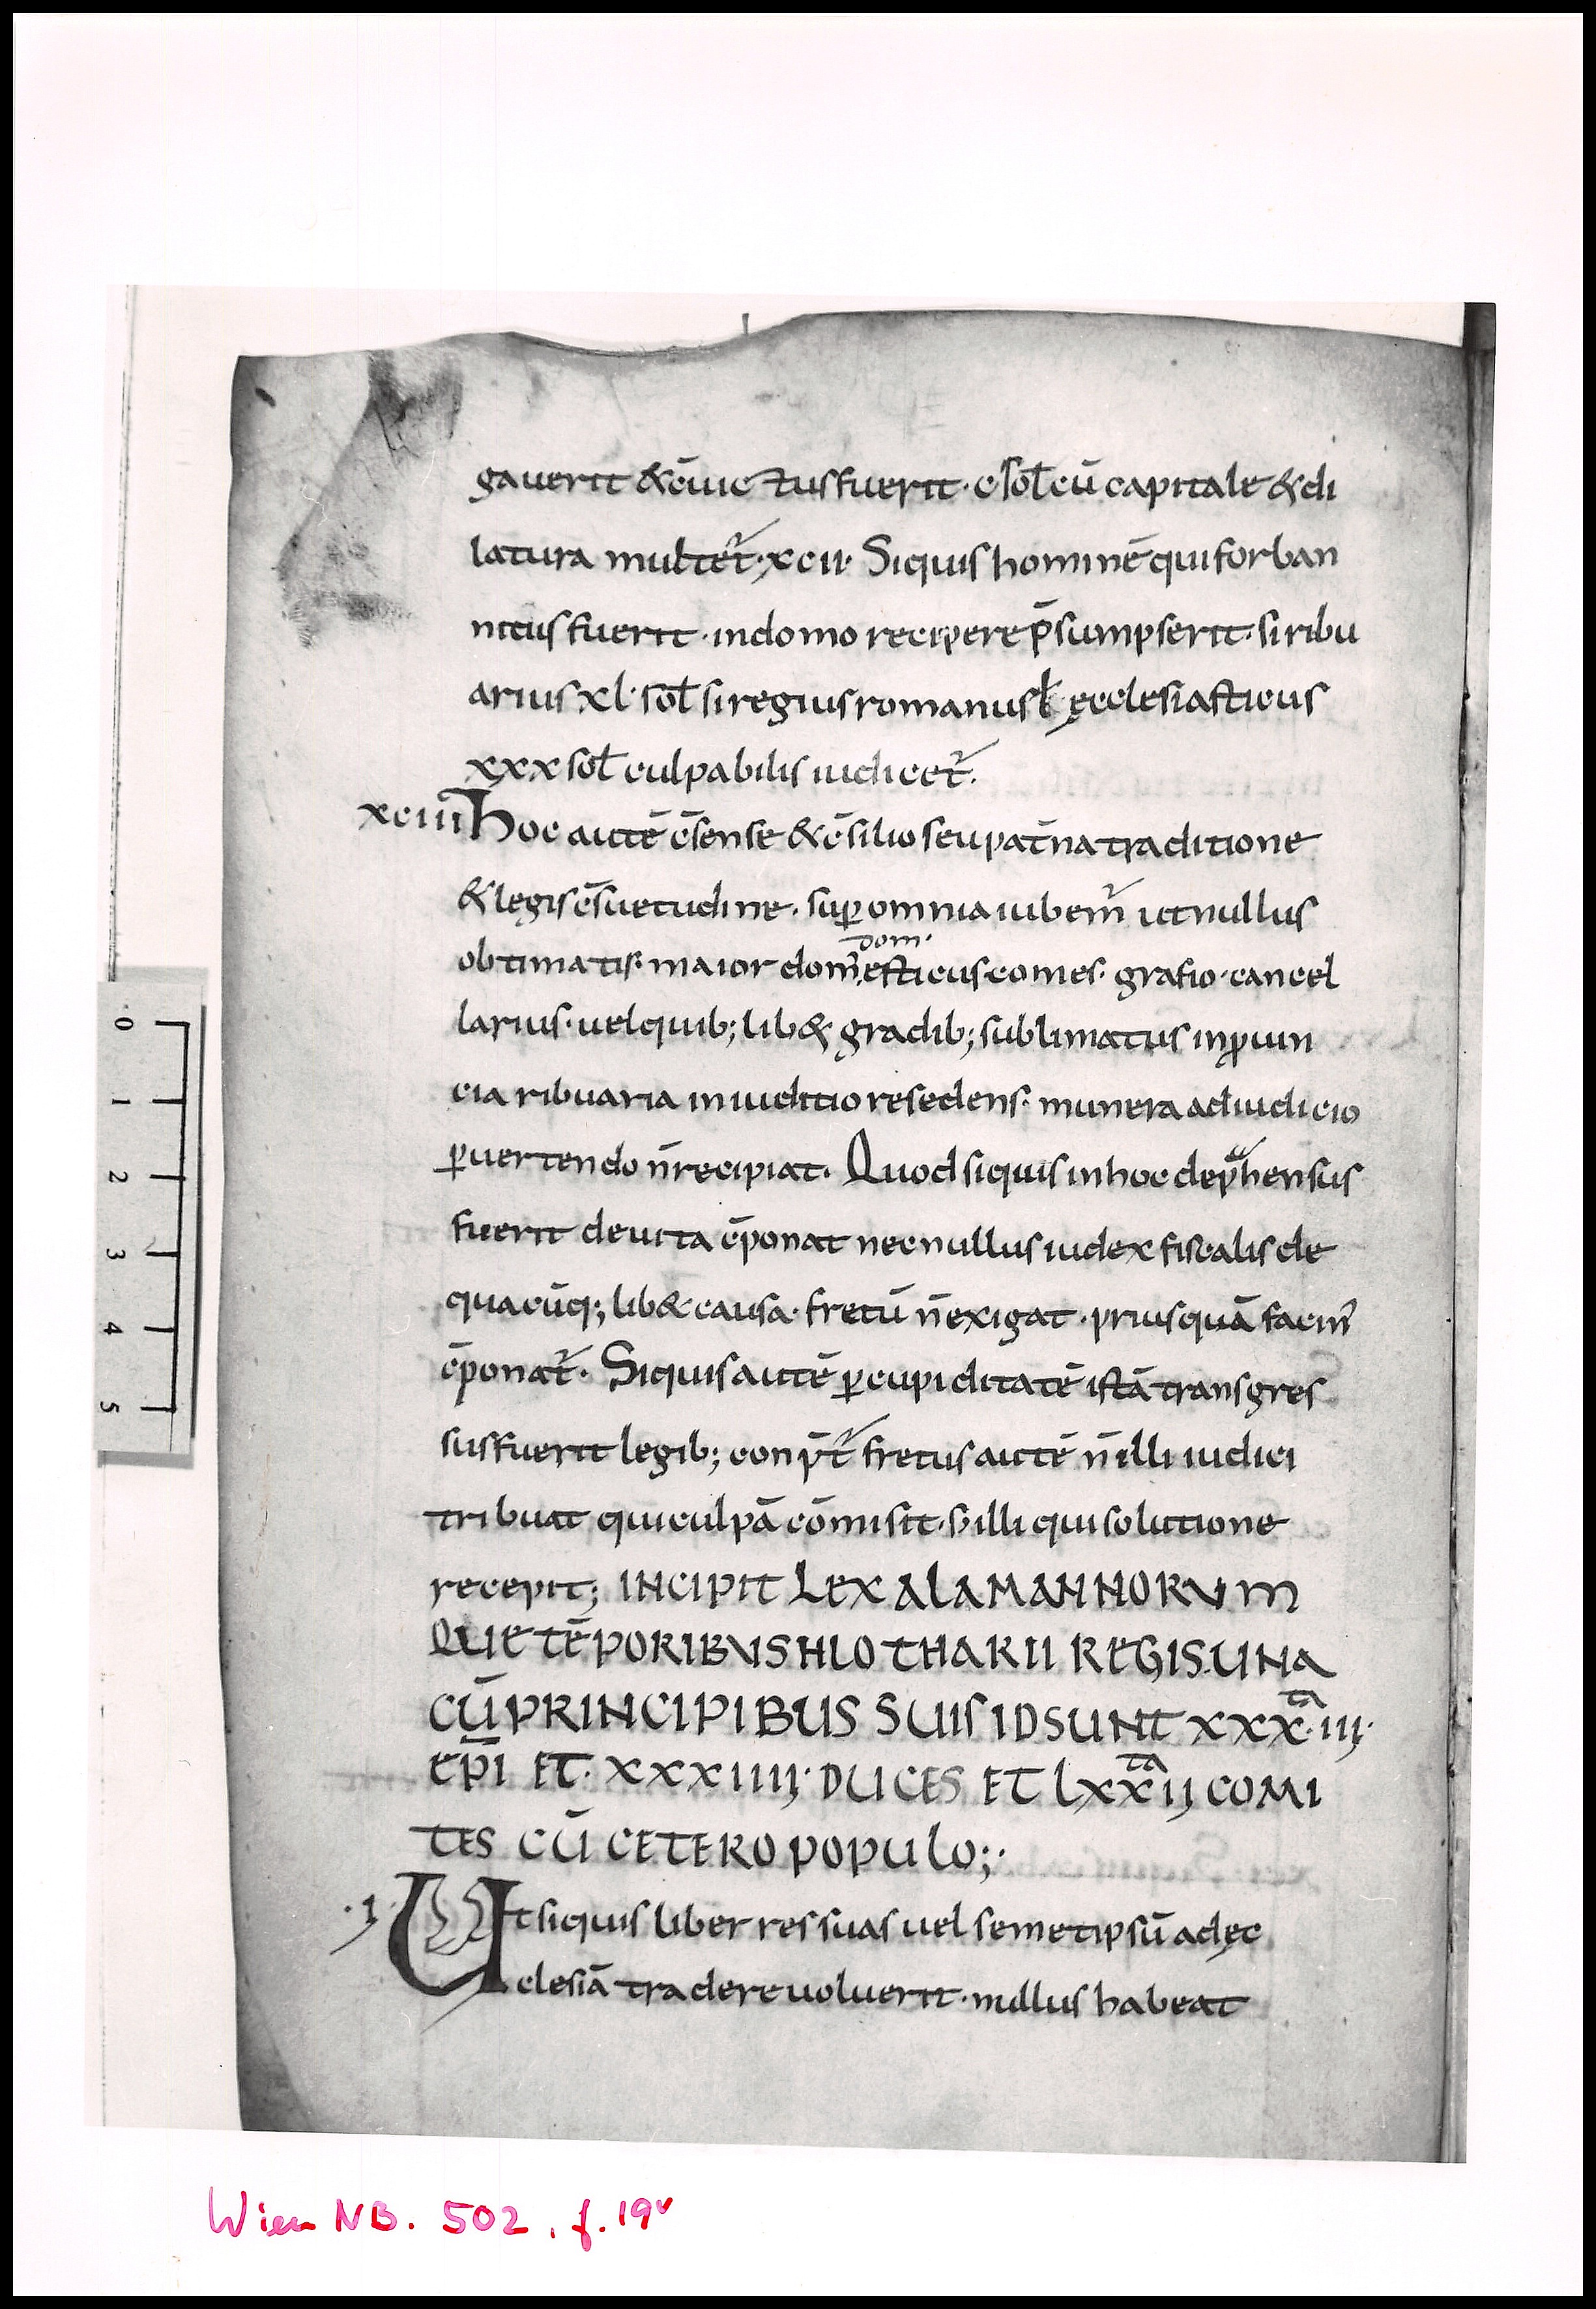 gauerit & c̄uictus fuerit · c sol̄ cū capitale & di
latura multet̄ · xcii · Siquis hominē qui forban
nitus fuerit · in domo recipere p̄sumpserit · si ribu
arius xl · sol̄ si regius romanus ł ęcclesiasticus
xxx sol̄ culpabilis iudicet̄ ·
xciii Hoc autē c̄sense & c̄silio seu pat̄na traditione
& legis c̄suetudine · suꝑ omnia iubem̄ ut nullus
dom ·
obtimatis · maior dom̄ esticus comes · grafio · cancel
larius · uel quib; lib& gradib; sublimatus in ꝓuin
cia ribuaria in iuditio resedens · munera ad iudicio
ꝑuertendo n̄ recipiat · Quod siquis in hoc dep̄hensus
fuerit de uita c̄ponat nec nullus iudex fiscalis de
qua cūq; lib& causa · fretū n̄ exigat · priusquā facin̄
c̄ponat̄ · Siquis autē ꝑ cupiditatē istā transgres
sus fuerit legib; conp̄t̄ fretus autē n̄ illi iudici
tribuat qui culpā cōmisit · s; illi qui solutione
recepit; INCIPIT LEX ALAMANNORUM
QUIE TĒPORIBVS HLOTHARII REGIS · UNA
CŪ PRINCIPIBUS SUIS ID SUNT XXXta · III ·
EP̄I ET · XXXIIII · DUCES ET LXXta II COMI
TES CŪ CETERO POPULO; ·
· I · Ut siquis liber res suas uel semetipsū ad ęc
clesiā tradere uoluerit · nullus habeat
0
1
2
3
4
5
Wien NB. 502, f. 19v